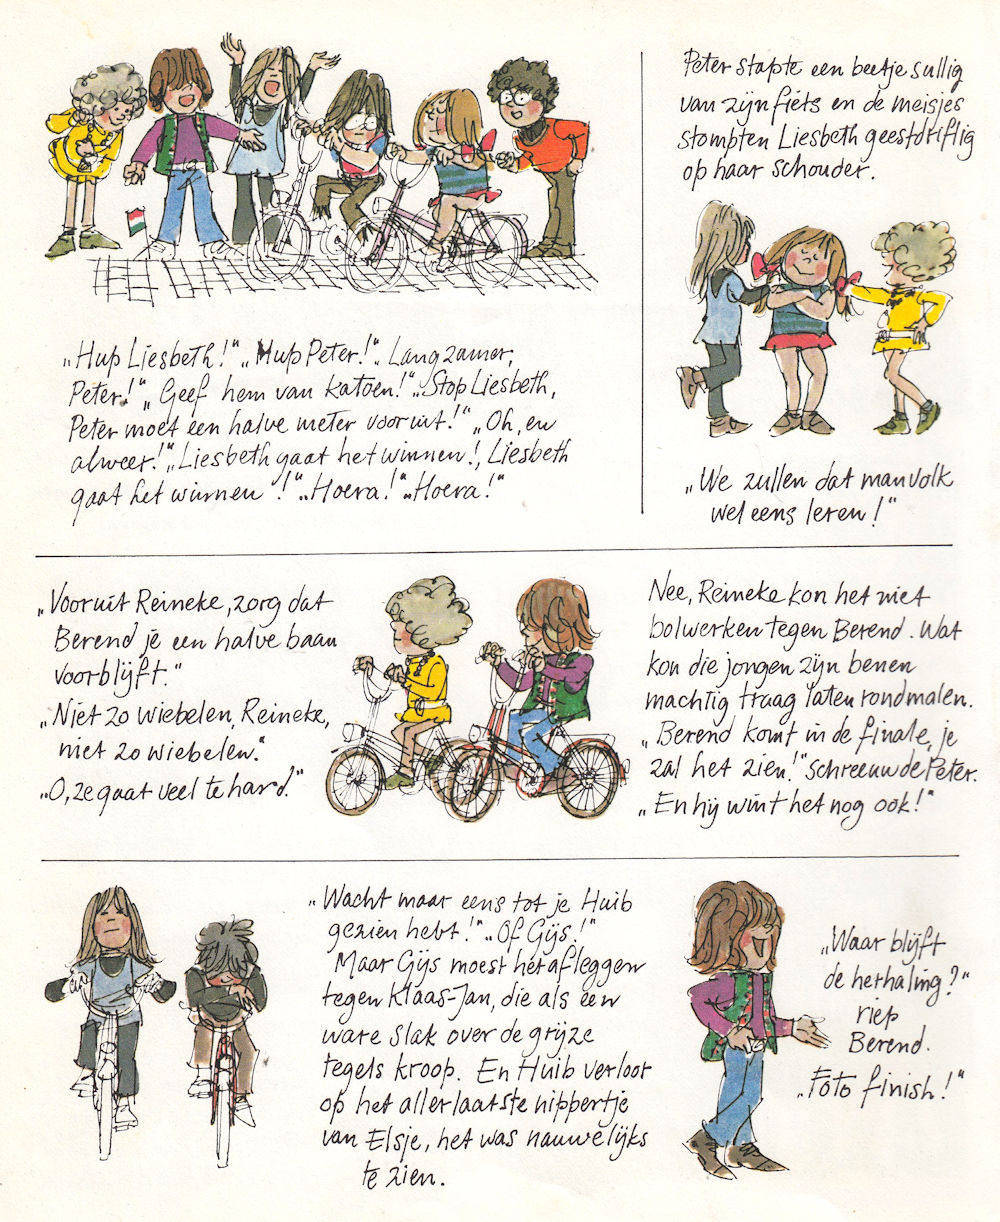 „Hup Liesbeth!" „Hup Peter!" „Langzamer,
Peter!" „Geef hem van katoen!" „Stop Liesbeth,
Peter moet een halve meter vooruit!" „Oh, en
alweer!" „Liesbeth gaat het winnen!, Liesbeth
gaat het winnen!" „Hoera!" „Hoera!"
Peter stapte een beetje sullig
van zijn fiets en de meisjes
stompten Liesbeth geestdriftig
op haar schouder.
„We zullen dat manvolk
wel eens leren!"
„Vooruit Reineke, zorg dat
Berend je een halve baan
voorblijft."
„Niet zo wiebelen, Reineke,
niet zo wiebelen."
„O, ze gaat veel te hard."
Nee, Reineke kon het niet
bolwerken tegen Berend. Wat
kon die jongen zijn benen
machtig traag laten rondmalen.
„Berend komt in de finale, je
zal het zien!" schreeuwde Peter.
„En hij wint het nog ook!"
„Wacht maar eens tot je Huib
gezien hebt!" „Of Gijs!"
Maar Gijs moest het afleggen
tegen Klaas-Jan, die als een
ware slak over de grijze
tegels kroop. En Huib verloor
op het allerlaatste nippertje
van Elsje, het was nauwelijks
te zien.
„Waar blijft
de herhaling?"
riep
Berend.
„Foto finish!"